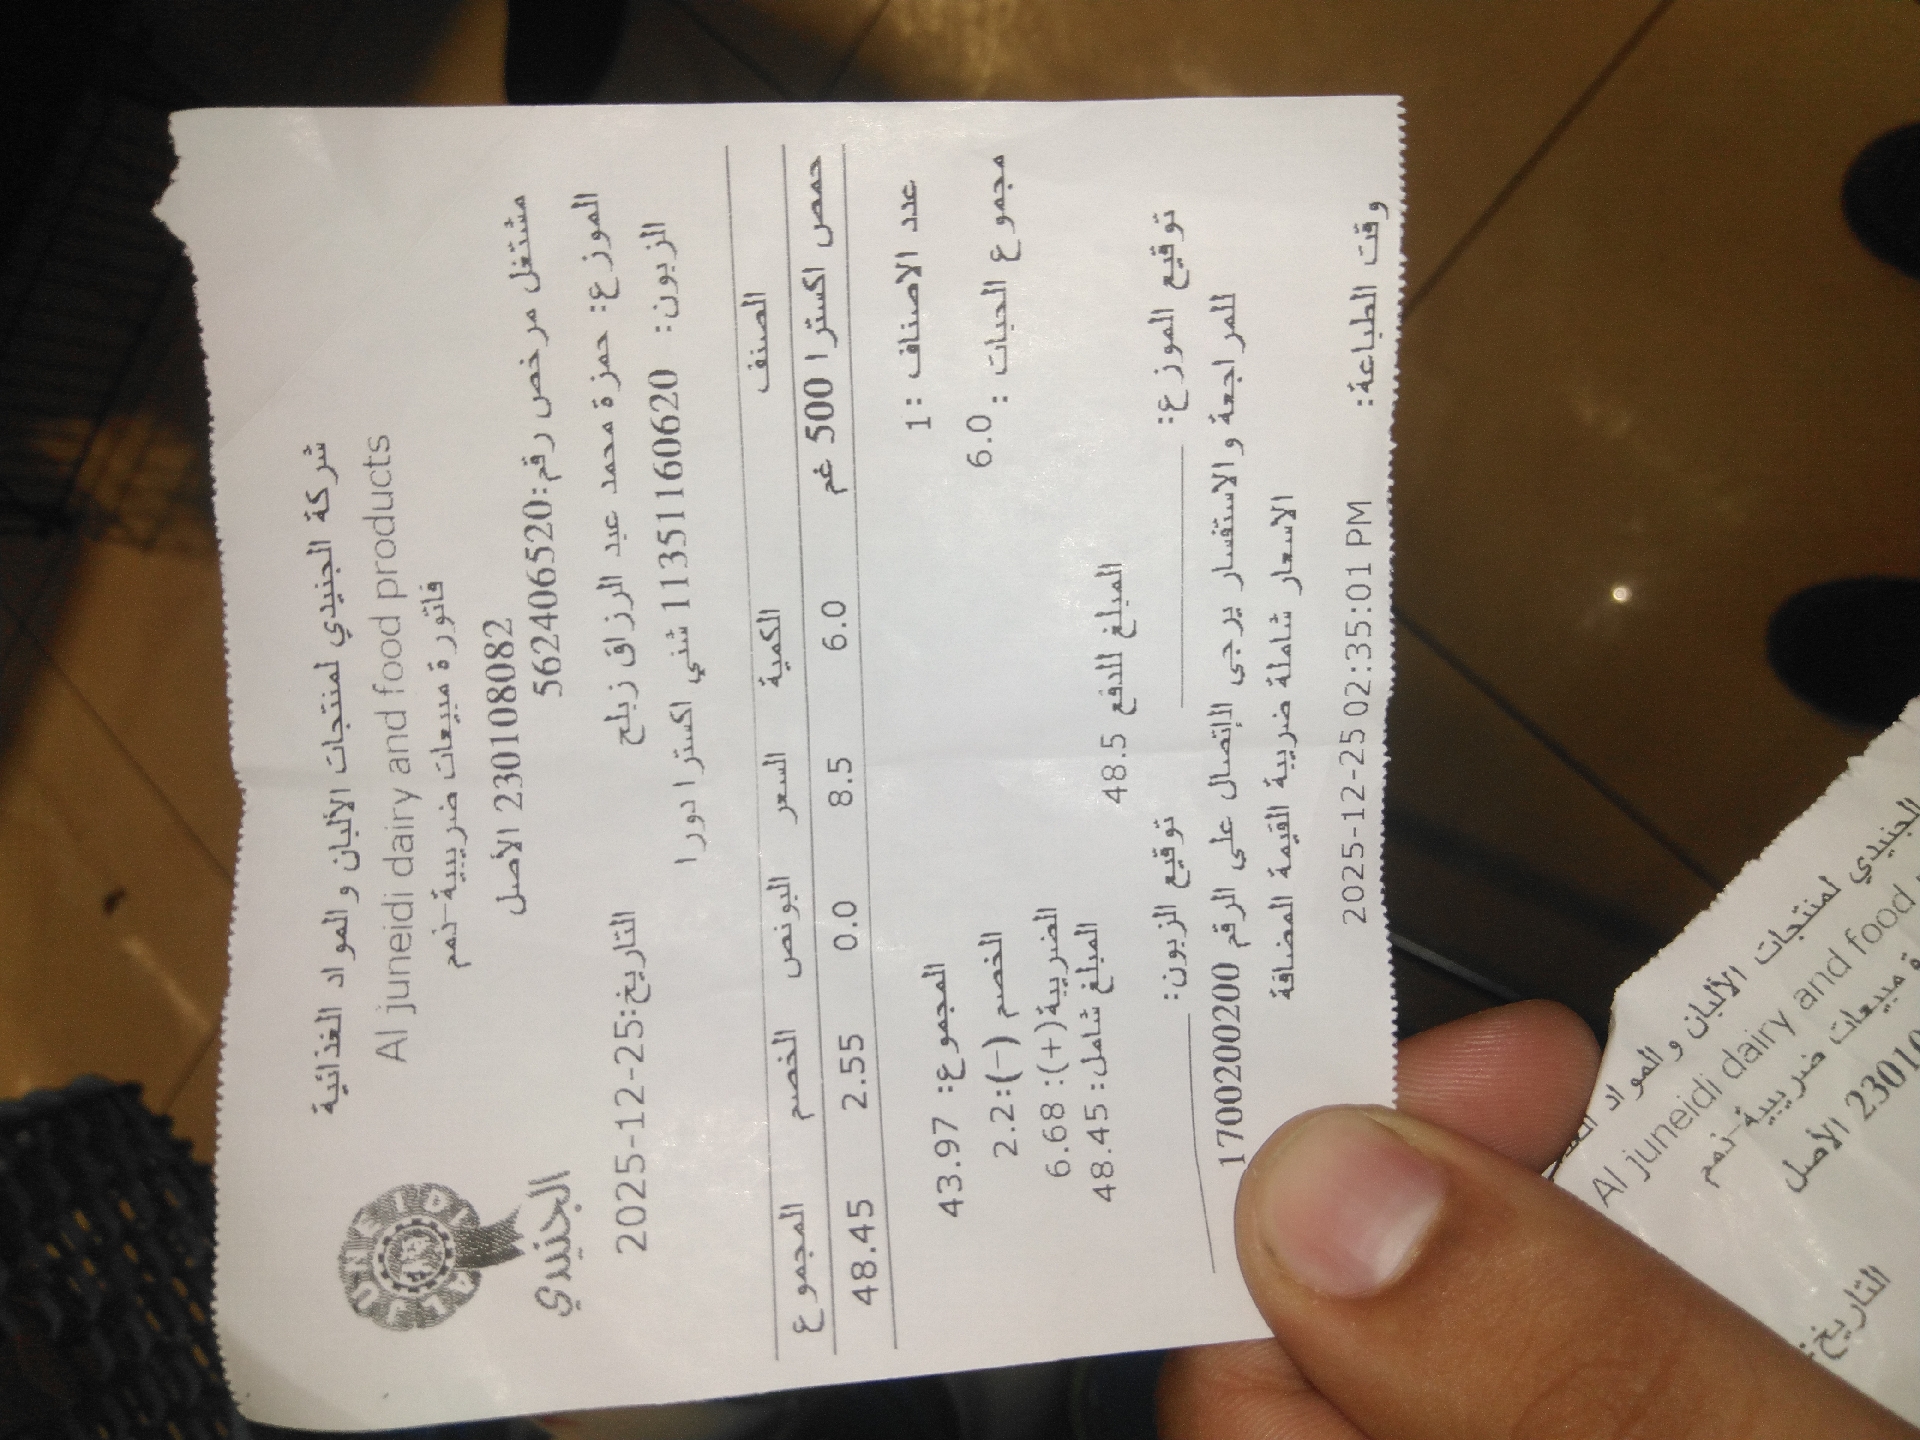 شركة الجنيدي لمنتجات الألبان و المواد الغذائية
Al juneidi dairy and food products
فاتورة مبيعات ضريبية-ذمم
230108082 الأصل
مشتغل مرخص رقم:562406520
AL JUNEIDI
الجنيدي
الموزع: حمزة محمد عبد الرزاق زبلح
التاريخ:2025-12-25
الزبون: 1135116‎0620 شني اكسترا دورا
الصنف الكمية السعر البونص الخصم المجموع
حمص اكسترا 500 غم 6.0 8.5 0.0 2.55 48.45
عدد الاصناف :1
المجموع: 43.97
مجموع الحبات : 6.0
الخصم (-):2.2
الضريبة(+): 6.68
المبلغ شامل: 48.45
المبلغ للدفع 48.5
توقيع الموزع: توقيع الزبون:
للمراجعة والاستفسار يرجى الاتصال على الرقم 1700200200
الاسعار شاملة ضريبة القيمة المضافة
وقت الطباعة: 2025-12-25 02:35:01 PM
الجنيدي لمنتجات الألبان و المواد
Al juneidi dairy and food
مبيعات ضريبية-ذمم
الأصل
التاريخ: